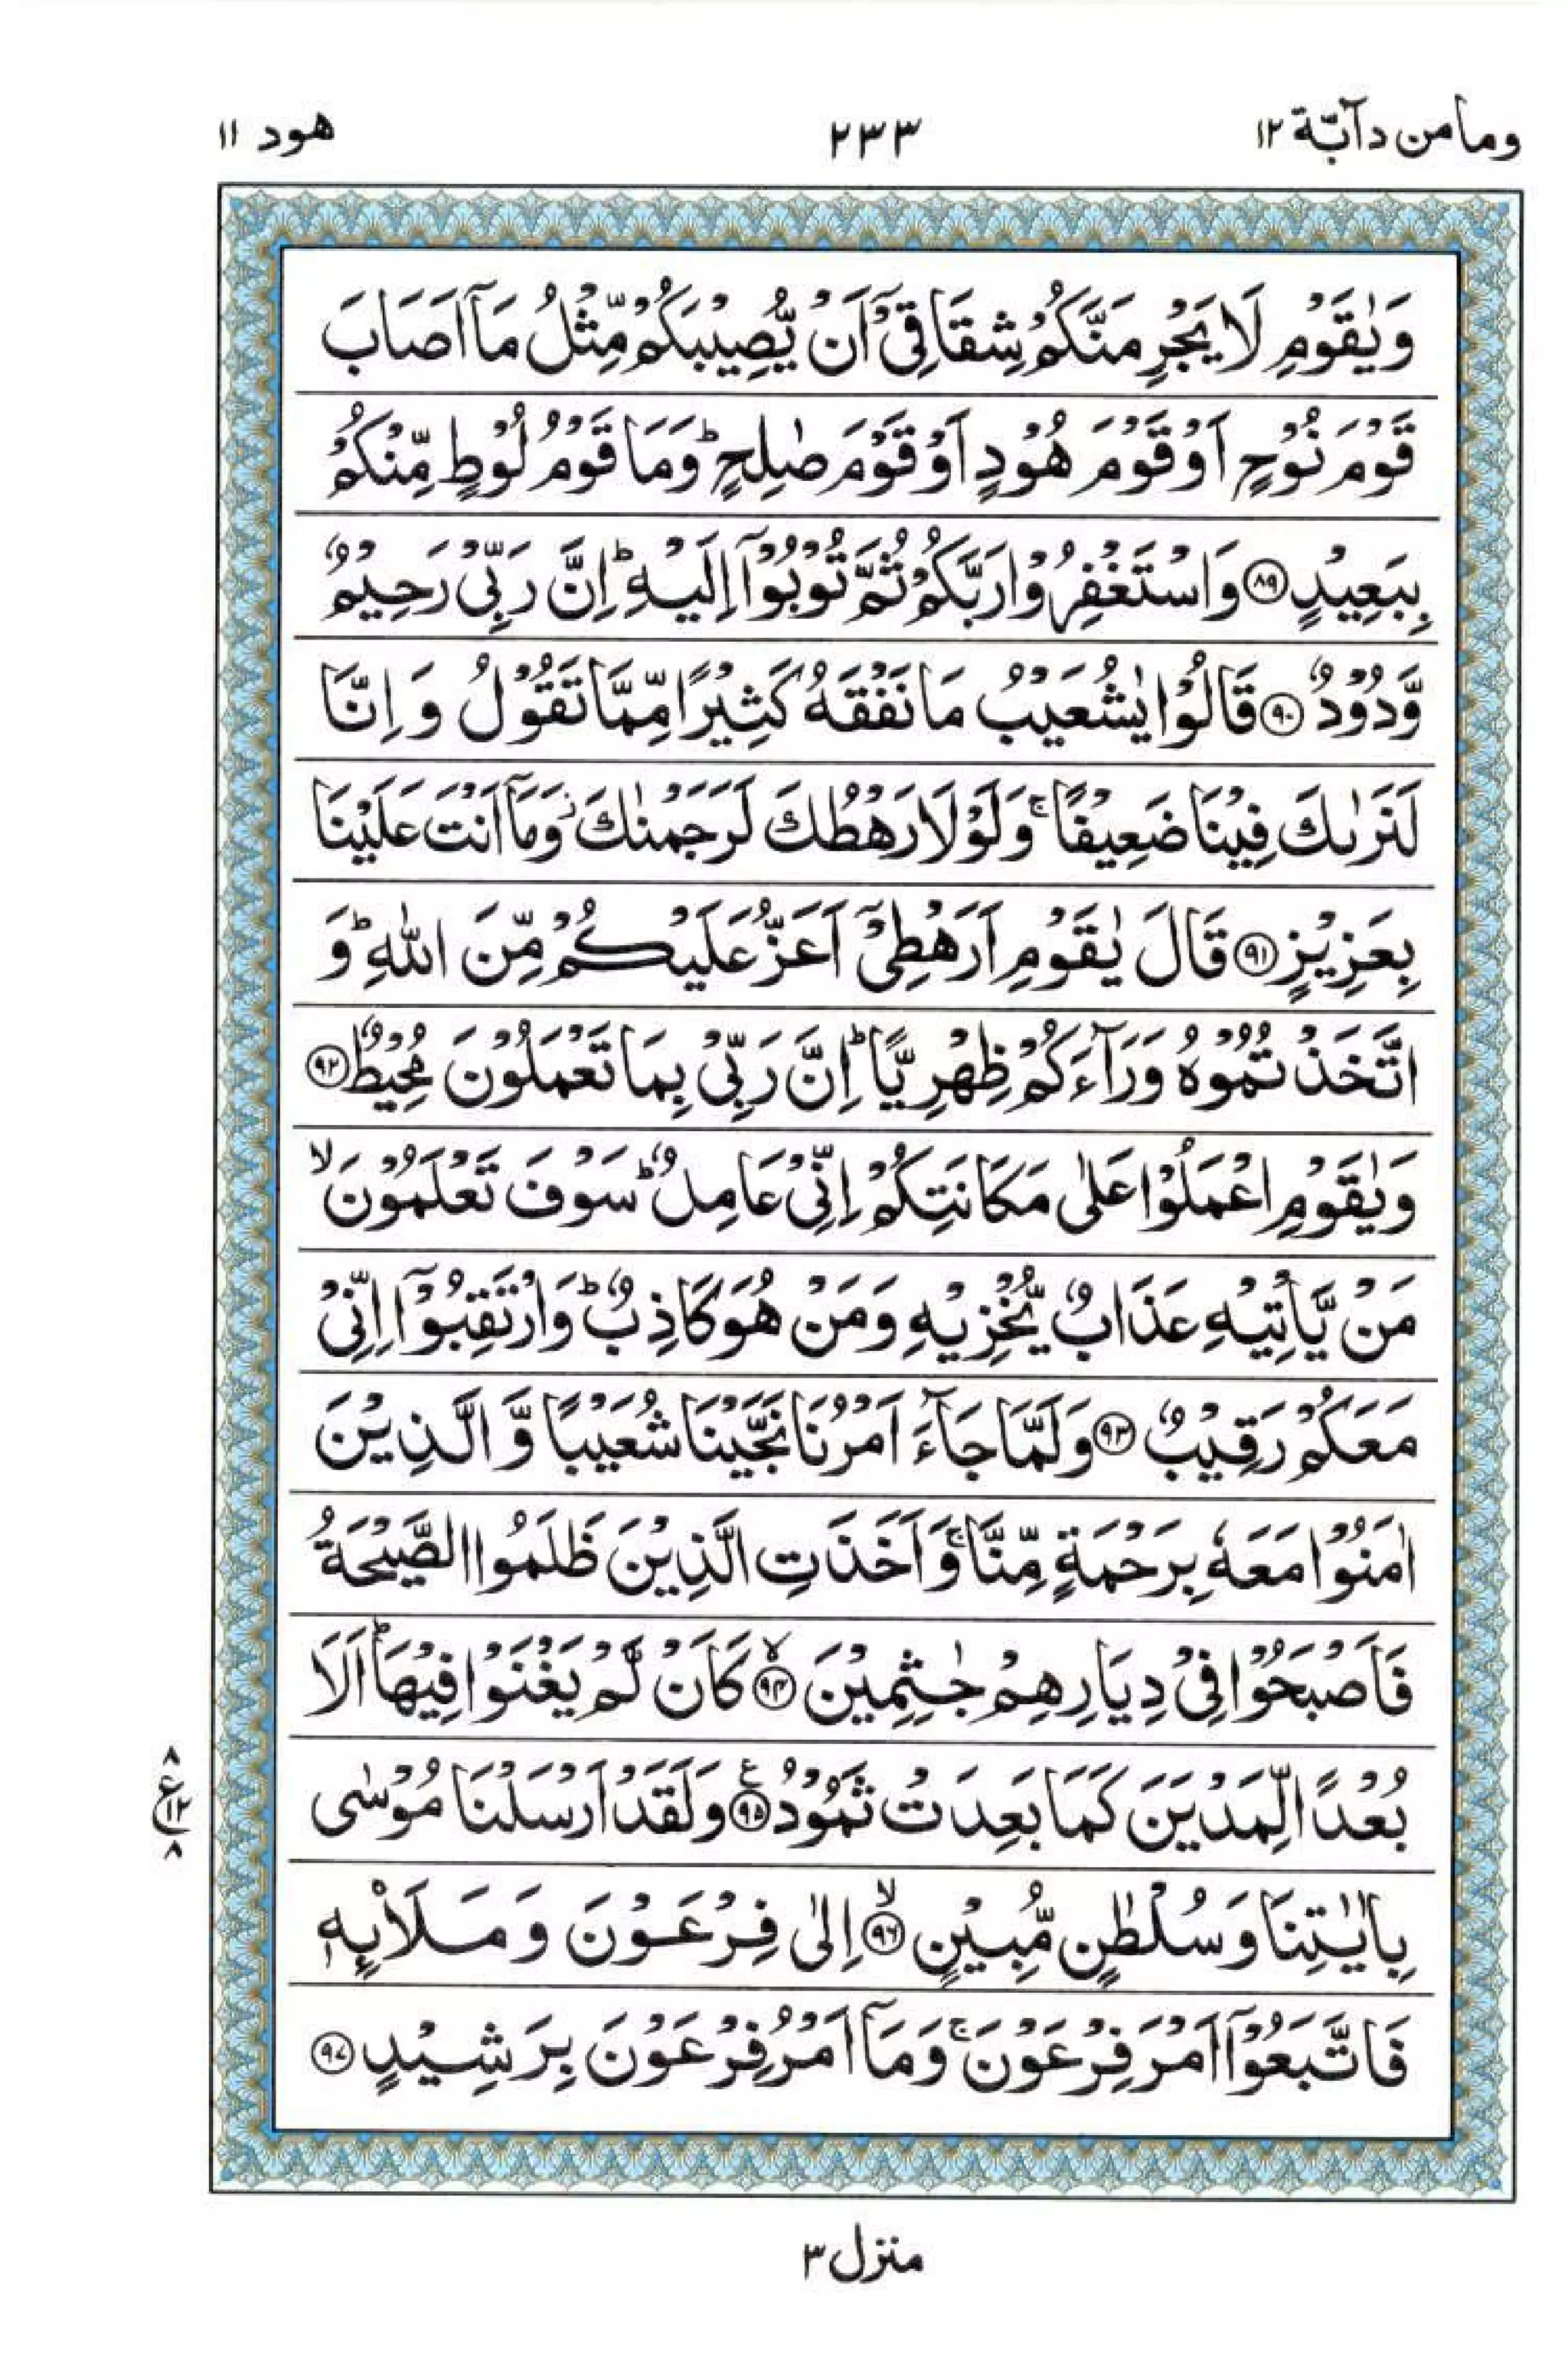 وما من دآبّة ١٢
٢٣٣
هود ١١
وَيٰقَوْمِ لَا يَجْرِمَنَّكُمْ شِقَاقِيْٓ اَنْ يُّصِيْبَكُمْ مِّثْلُ مَآ اَصَابَ
قَوْمَ نُوْحٍ اَوْ قَوْمَ هُوْدٍ اَوْ قَوْمَ صٰلِحٍ ؕ وَمَا قَوْمُ لُوْطٍ مِّنْكُمْ
بِبَعِيْدٍ ﴿٨٩﴾ وَاسْتَغْفِرُوْا رَبَّكُمْ ثُمَّ تُوْبُوْٓا اِلَيْهِ ؕ اِنَّ رَبِّيْ رَحِيْمٌ
وَّدُوْدٌ ﴿٩٠﴾ قَالُوْا يٰشُعَيْبُ مَا نَفْقَهُ كَثِيْرًا مِّمَّا تَقُوْلُ وَ اِنَّا
لَنَرٰىكَ فِيْنَا ضَعِيْفًا ۚ وَلَوْلَا رَهْطُكَ لَرَجَمْنٰكَ ؗ وَمَآ اَنْتَ عَلَيْنَا
بِعَزِيْزٍ ﴿٩١﴾ قَالَ يٰقَوْمِ اَرَهْطِيْٓ اَعَزُّ عَلَيْكُمْ مِّنَ اللّٰهِ ؕ وَ
اتَّخَذْتُمُوْهُ وَرَآءَكُمْ ظِهْرِيًّا ؕ اِنَّ رَبِّيْ بِمَا تَعْمَلُوْنَ مُحِيْطٌ ﴿٩٢﴾
وَيٰقَوْمِ اعْمَلُوْا عَلٰى مَكَانَتِكُمْ اِنِّيْ عَامِلٌ ؕ سَوْفَ تَعْلَمُوْنَ ۙ
مَنْ يَّاْتِيْهِ عَذَابٌ يُّخْزِيْهِ وَمَنْ هُوَ كَاذِبٌ ؕ وَارْتَقِبُوْٓا اِنِّيْ
مَعَكُمْ رَقِيْبٌ ﴿٩٣﴾ وَلَمَّا جَآءَ اَمْرُنَا نَجَّيْنَا شُعَيْبًا وَّ الَّذِيْنَ
اٰمَنُوْا مَعَهٗ بِرَحْمَةٍ مِّنَّا ۚ وَاَخَذَتِ الَّذِيْنَ ظَلَمُوا الصَّيْحَةُ
فَاَصْبَحُوْا فِيْ دِيَارِهِمْ جٰثِمِيْنَ ۙ﴿٩٤﴾ كَاَنْ لَّمْ يَغْنَوْا فِيْهَا ؕ اَلَا
بُعْدًا لِّمَدْيَنَ كَمَا بَعِدَتْ ثَمُوْدُ ﴿٩٥﴾ ع وَلَقَدْ اَرْسَلْنَا مُوْسٰى
٨
ع ١٢
٨
بِاٰيٰتِنَا وَسُلْطٰنٍ مُّبِيْنٍ ۙ﴿٩٦﴾ اِلٰى فِرْعَوْنَ وَمَلَا۟ىِٕهٖ
فَاتَّبَعُوْٓا اَمْرَ فِرْعَوْنَ ۚ وَمَآ اَمْرُ فِرْعَوْنَ بِرَشِيْدٍ ﴿٩٧﴾
منزل ٣